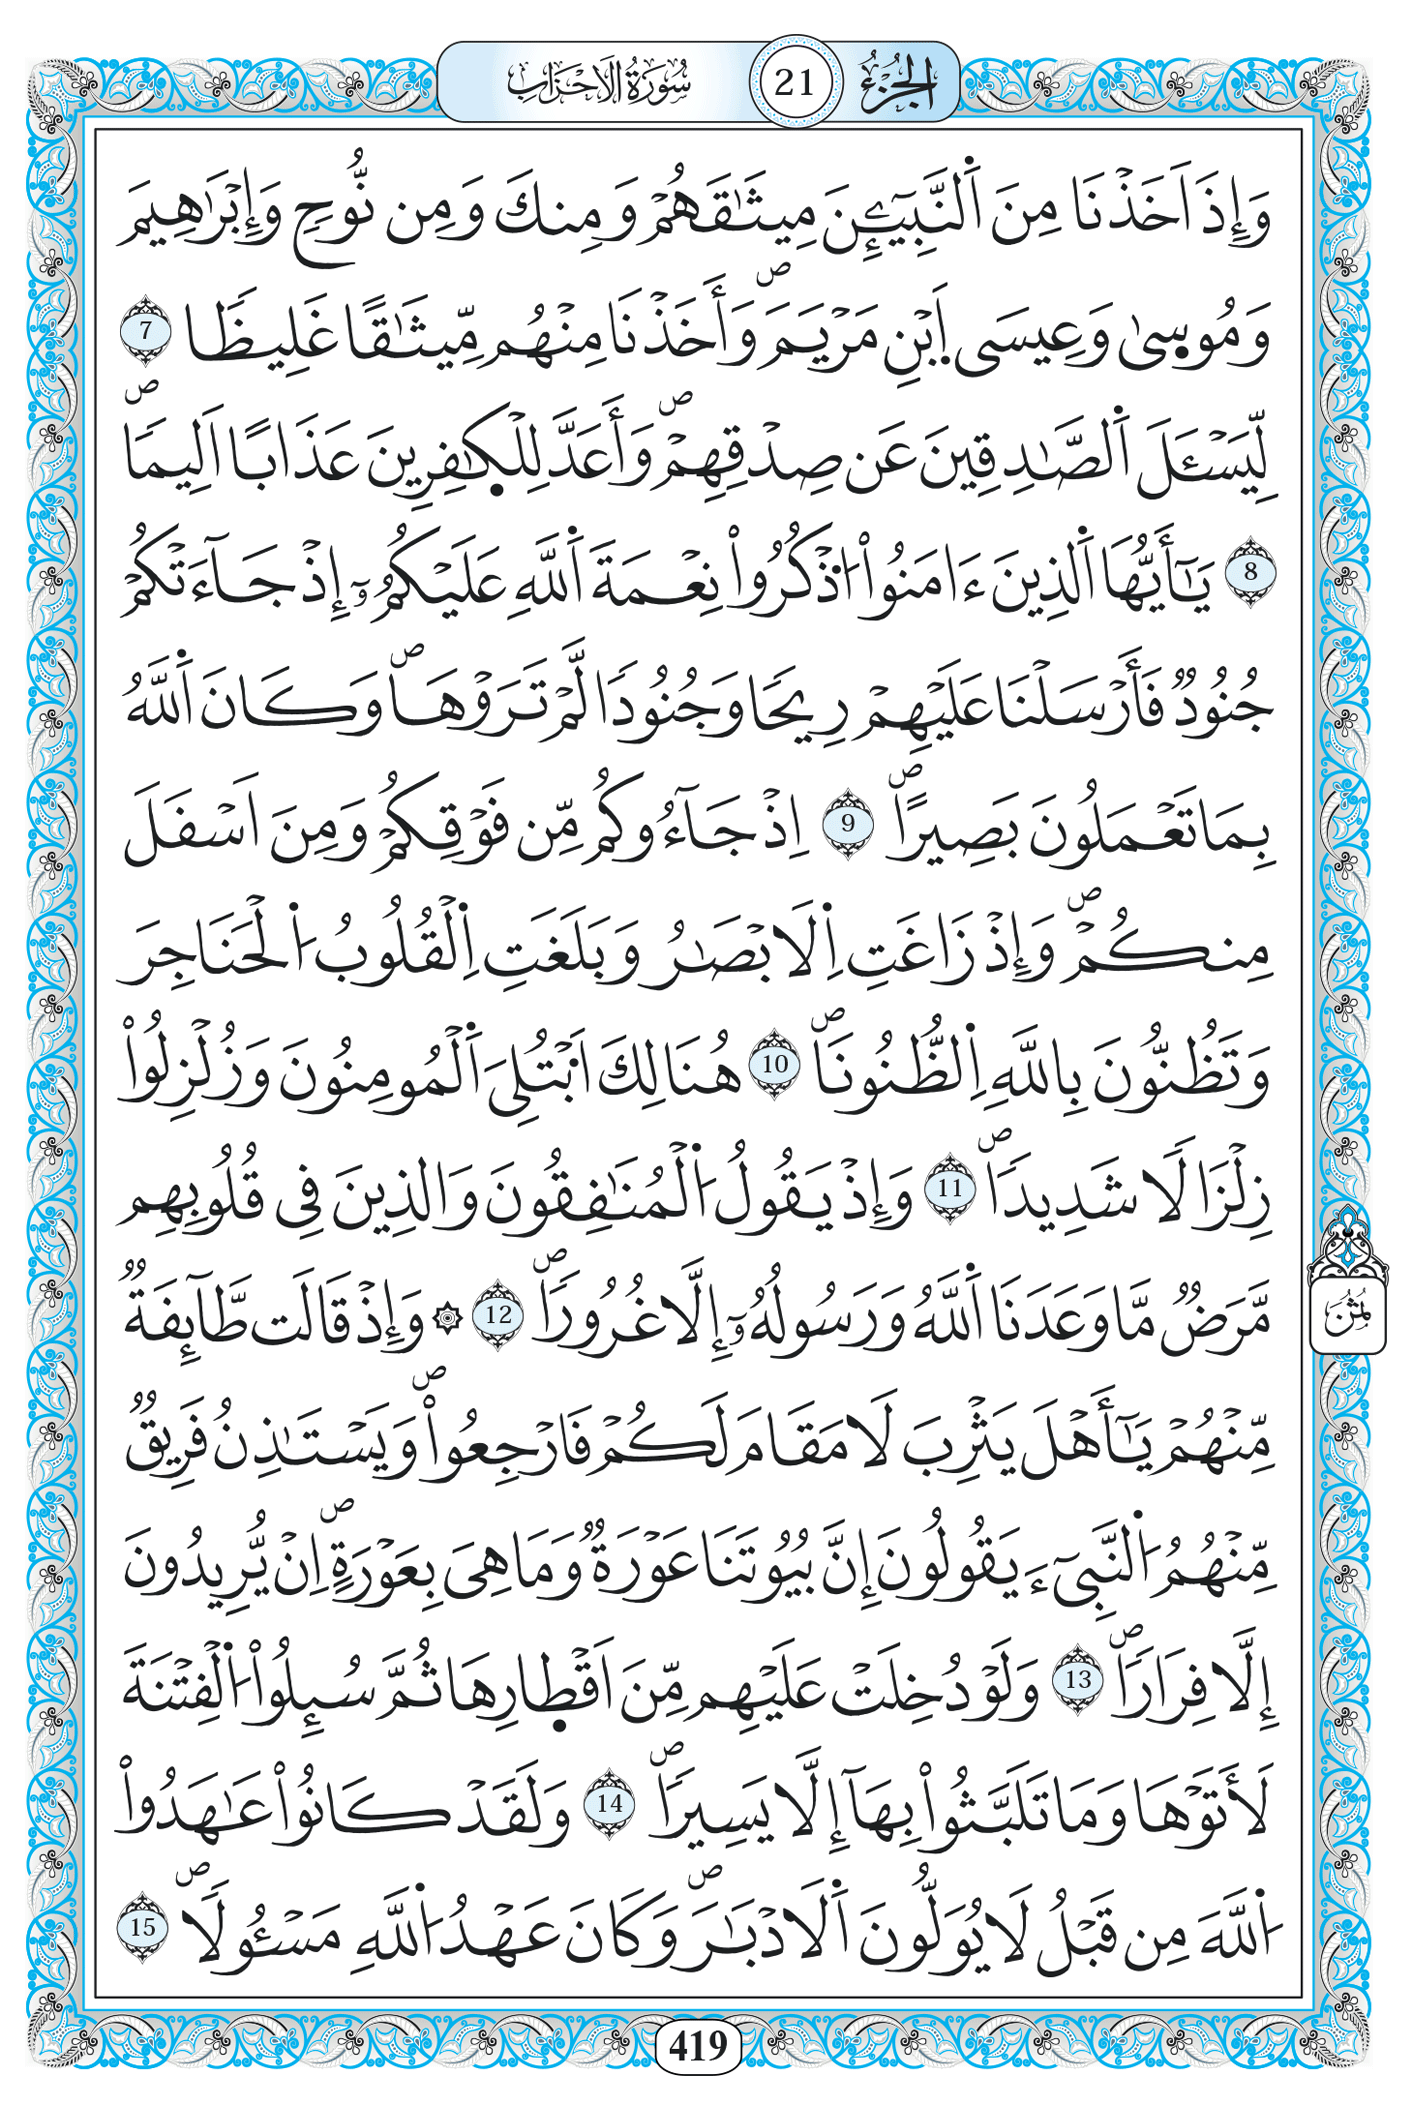 الجُزْءُ 21 سُورَةُ الَاحْزَابِ
وَإِذَ اَخَذْنَا مِنَ اَ۬لنَّبِيٓـِٕۧنَ مِيثَٰقَهُمْ وَمِنكَ وَمِن نُّوحٖ وَإِبْرَٰهِيمَ
وَمُوس۪يٰ وَعِيسَي اَ۪بْنِ مَرْيَمَۖ وَأَخَذْنَا مِنْهُم مِّيثَٰقًا غَلِيظٗا 7
لِّيَسْـَٔلَ اَ۬لصَّٰدِقِينَ عَن صِدْقِهِمْۖ وَأَعَدَّ لِلْكٰ۪فِرِينَ عَذَابًا اَلِيمٗاۖ
8 يَٰٓأَيُّهَا اَ۬لذِينَ ءَامَنُواْ اُ۟ذْكُرُواْ نِعْمَةَ اَ۬للَّهِ عَلَيْكُمُۥٓ إِذْ جَآءَتْكُمْ
جُنُودٞ فَأَرْسَلْنَا عَلَيْهِمْ رِيحٗا وَجُنُودٗا لَّمْ تَرَوْهَاۖ وَكَانَ اَ۬للَّهُ
بِمَا تَعْمَلُونَ بَصِيرًاۖ 9 اِذْ جَآءُوكُم مِّن فَوْقِكُمْ وَمِنَ اَسْفَلَ
مِنكُمْۖ وَإِذْ زَاغَتِ اِ۬لَابْصَٰرُ وَبَلَغَتِ اِ۬لْقُلُوبُ اُ۬لْحَنَاجِرَ
وَتَظُنُّونَ بِاللَّهِ اِ۬لظُّنُونَاۖ 10 هُنَالِكَ اَ۟بْتُلِيَ اَ۬لْمُومِنُونَ وَزُلْزِلُواْ
زِلْزَالٗا شَدِيدٗاۖ 11 وَإِذْ يَقُولُ اُ۬لْمُنَٰفِقُونَ وَالذِينَ فِي قُلُوبِهِم
مَّرَضٞ مَّا وَعَدَنَا اَ۬للَّهُ وَرَسُولُهُۥٓ إِلَّا غُرُورٗاۖ 12 ۞ وَإِذْ قَالَت طَّآئِفَةٞ
ثُمُن
مِّنْهُمْ يَٰٓأَهْلَ يَثْرِبَ لَا مَقَامَ لَكُمْ فَارْجِعُواْۖ وَيَسْتَٰذِنُ فَرِيقٞ
مِّنْهُمُ اُ۬لنَّبِيٓءَ يَقُولُونَ إِنَّ بُيُوتَنَا عَوْرَةٞ وَمَا هِيَ بِعَوْرَةٍۖ اِنْ يُّرِيدُونَ
إِلَّا فِرَارٗاۖ 13 وَلَوْ دُخِلَتْ عَلَيْهِم مِّنَ اَقْطارِهَا ثُمَّ سُئِلُواْ اُ۬لْفِتْنَةَ
لَأَتَوْهَا وَمَا تَلَبَّثُواْ بِهَآ إِلَّا يَسِيرٗاۖ 14 وَلَقَدْ كَانُواْ عَٰهَدُواْ
اُ۬للَّهَ مِن قَبْلُ لَا يُوَلُّونَ اَ۬لَادْبَٰرَۖ وَكَانَ عَهْدُ اُ۬للَّهِ مَسْـُٔولٗاۖ 15
419